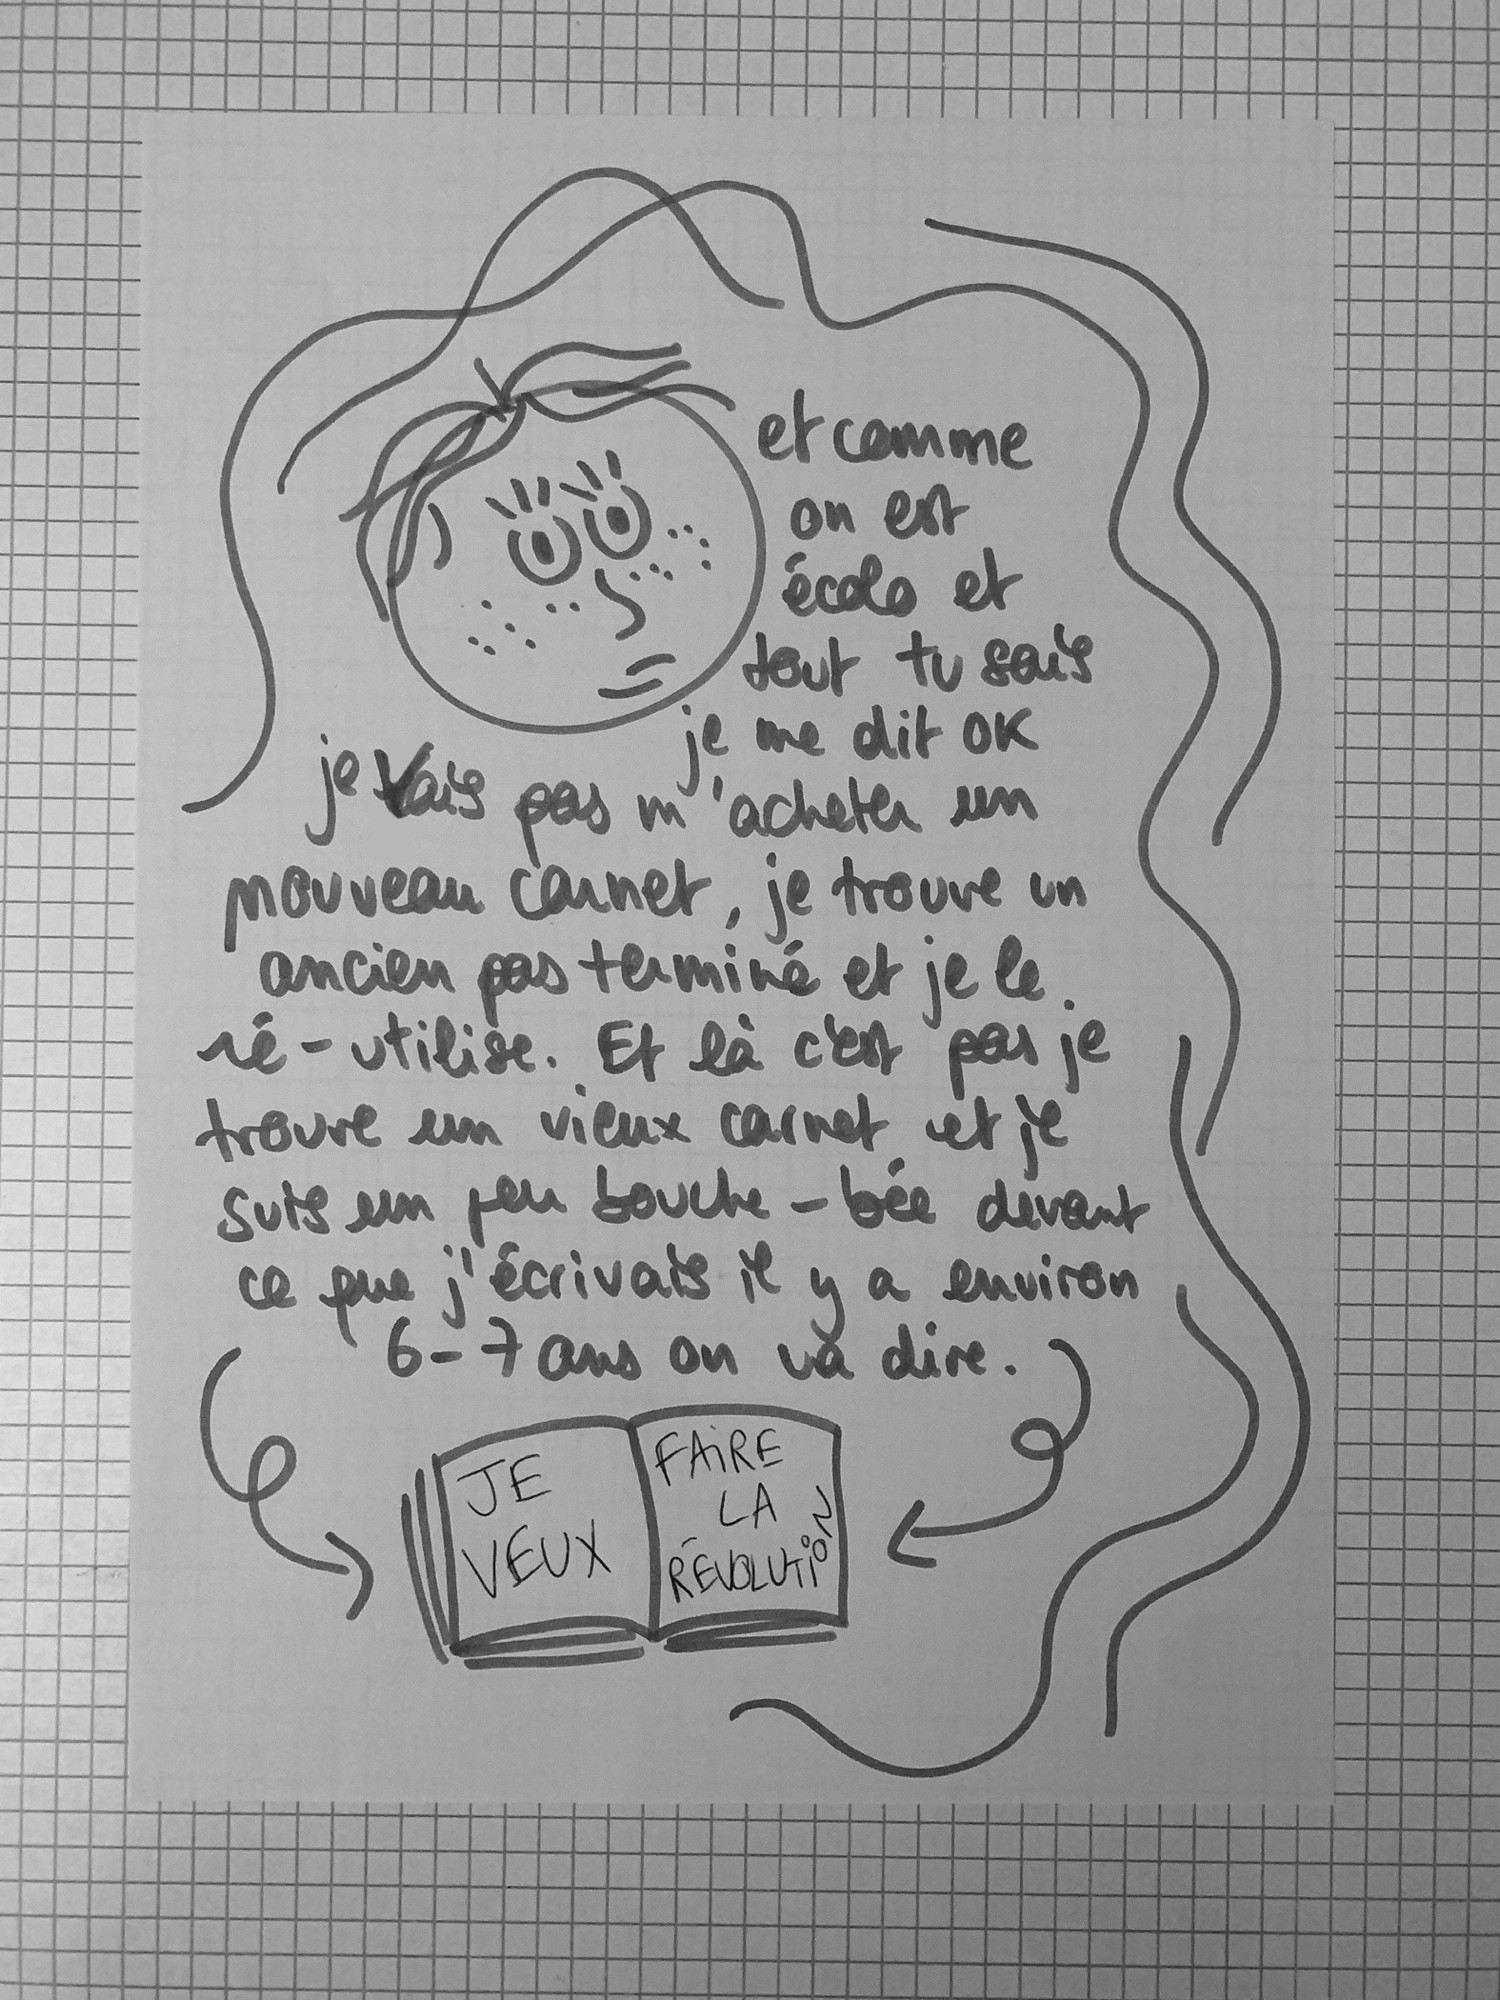 et comme
on est
écolo et
tout tu sais
je me dit OK
je vais pas m'acheter un
nouveau carnet, je trouve un
ancien pas terminé et je le
ré-utilise. Et là c'est pas je
trouve un vieux carnet et je
suis um peu bouche-bée devant
ce que j'écrivais il y a environ
6-7 ans on va dire.
JE
VEUX
FAIRE
LA
RÉVOLUTION